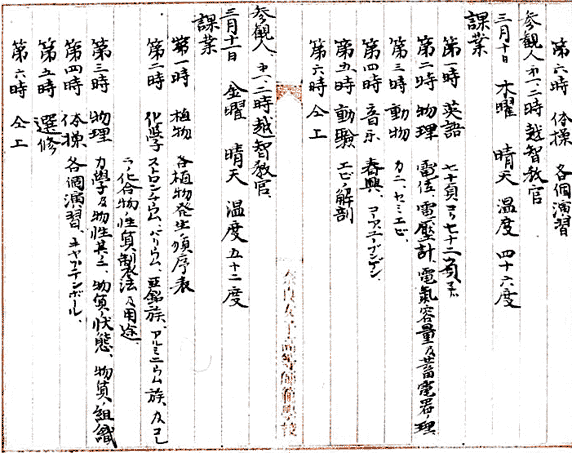 第六時 体操 各個演習
参観人 第一、二時越智教官
三月十日 木曜 晴天 温度 四十六度
課業
第一時 英語 七十頁ヨリ七十二頁マデ
第二時 物理 電位、電壓計、電氣容量及蓄電器ノ理
第三時 動物 カニ、セミエビ、
第四時 音楽 春興、コールユーブンゲン、
第五時 動験 エビノ解剖
第六時 仝上
奈良女子高等師範學校
参観人、第一、二時越智教官、
三月十一日 金曜 晴天 温度 五十二度
課業
第一時 植物 各植物発生順序表
第二時 化学 ストロンチウム、バリウム、亜鉛族、アルミニウム族、及
ラノ化合物ノ性質製法及用途、
第三時 物理 力學及物性其二、物質ノ状態、物質ノ組織
第四時 体操 各個演習、キャプテンボール、
第五時 選修
第六時 仝上